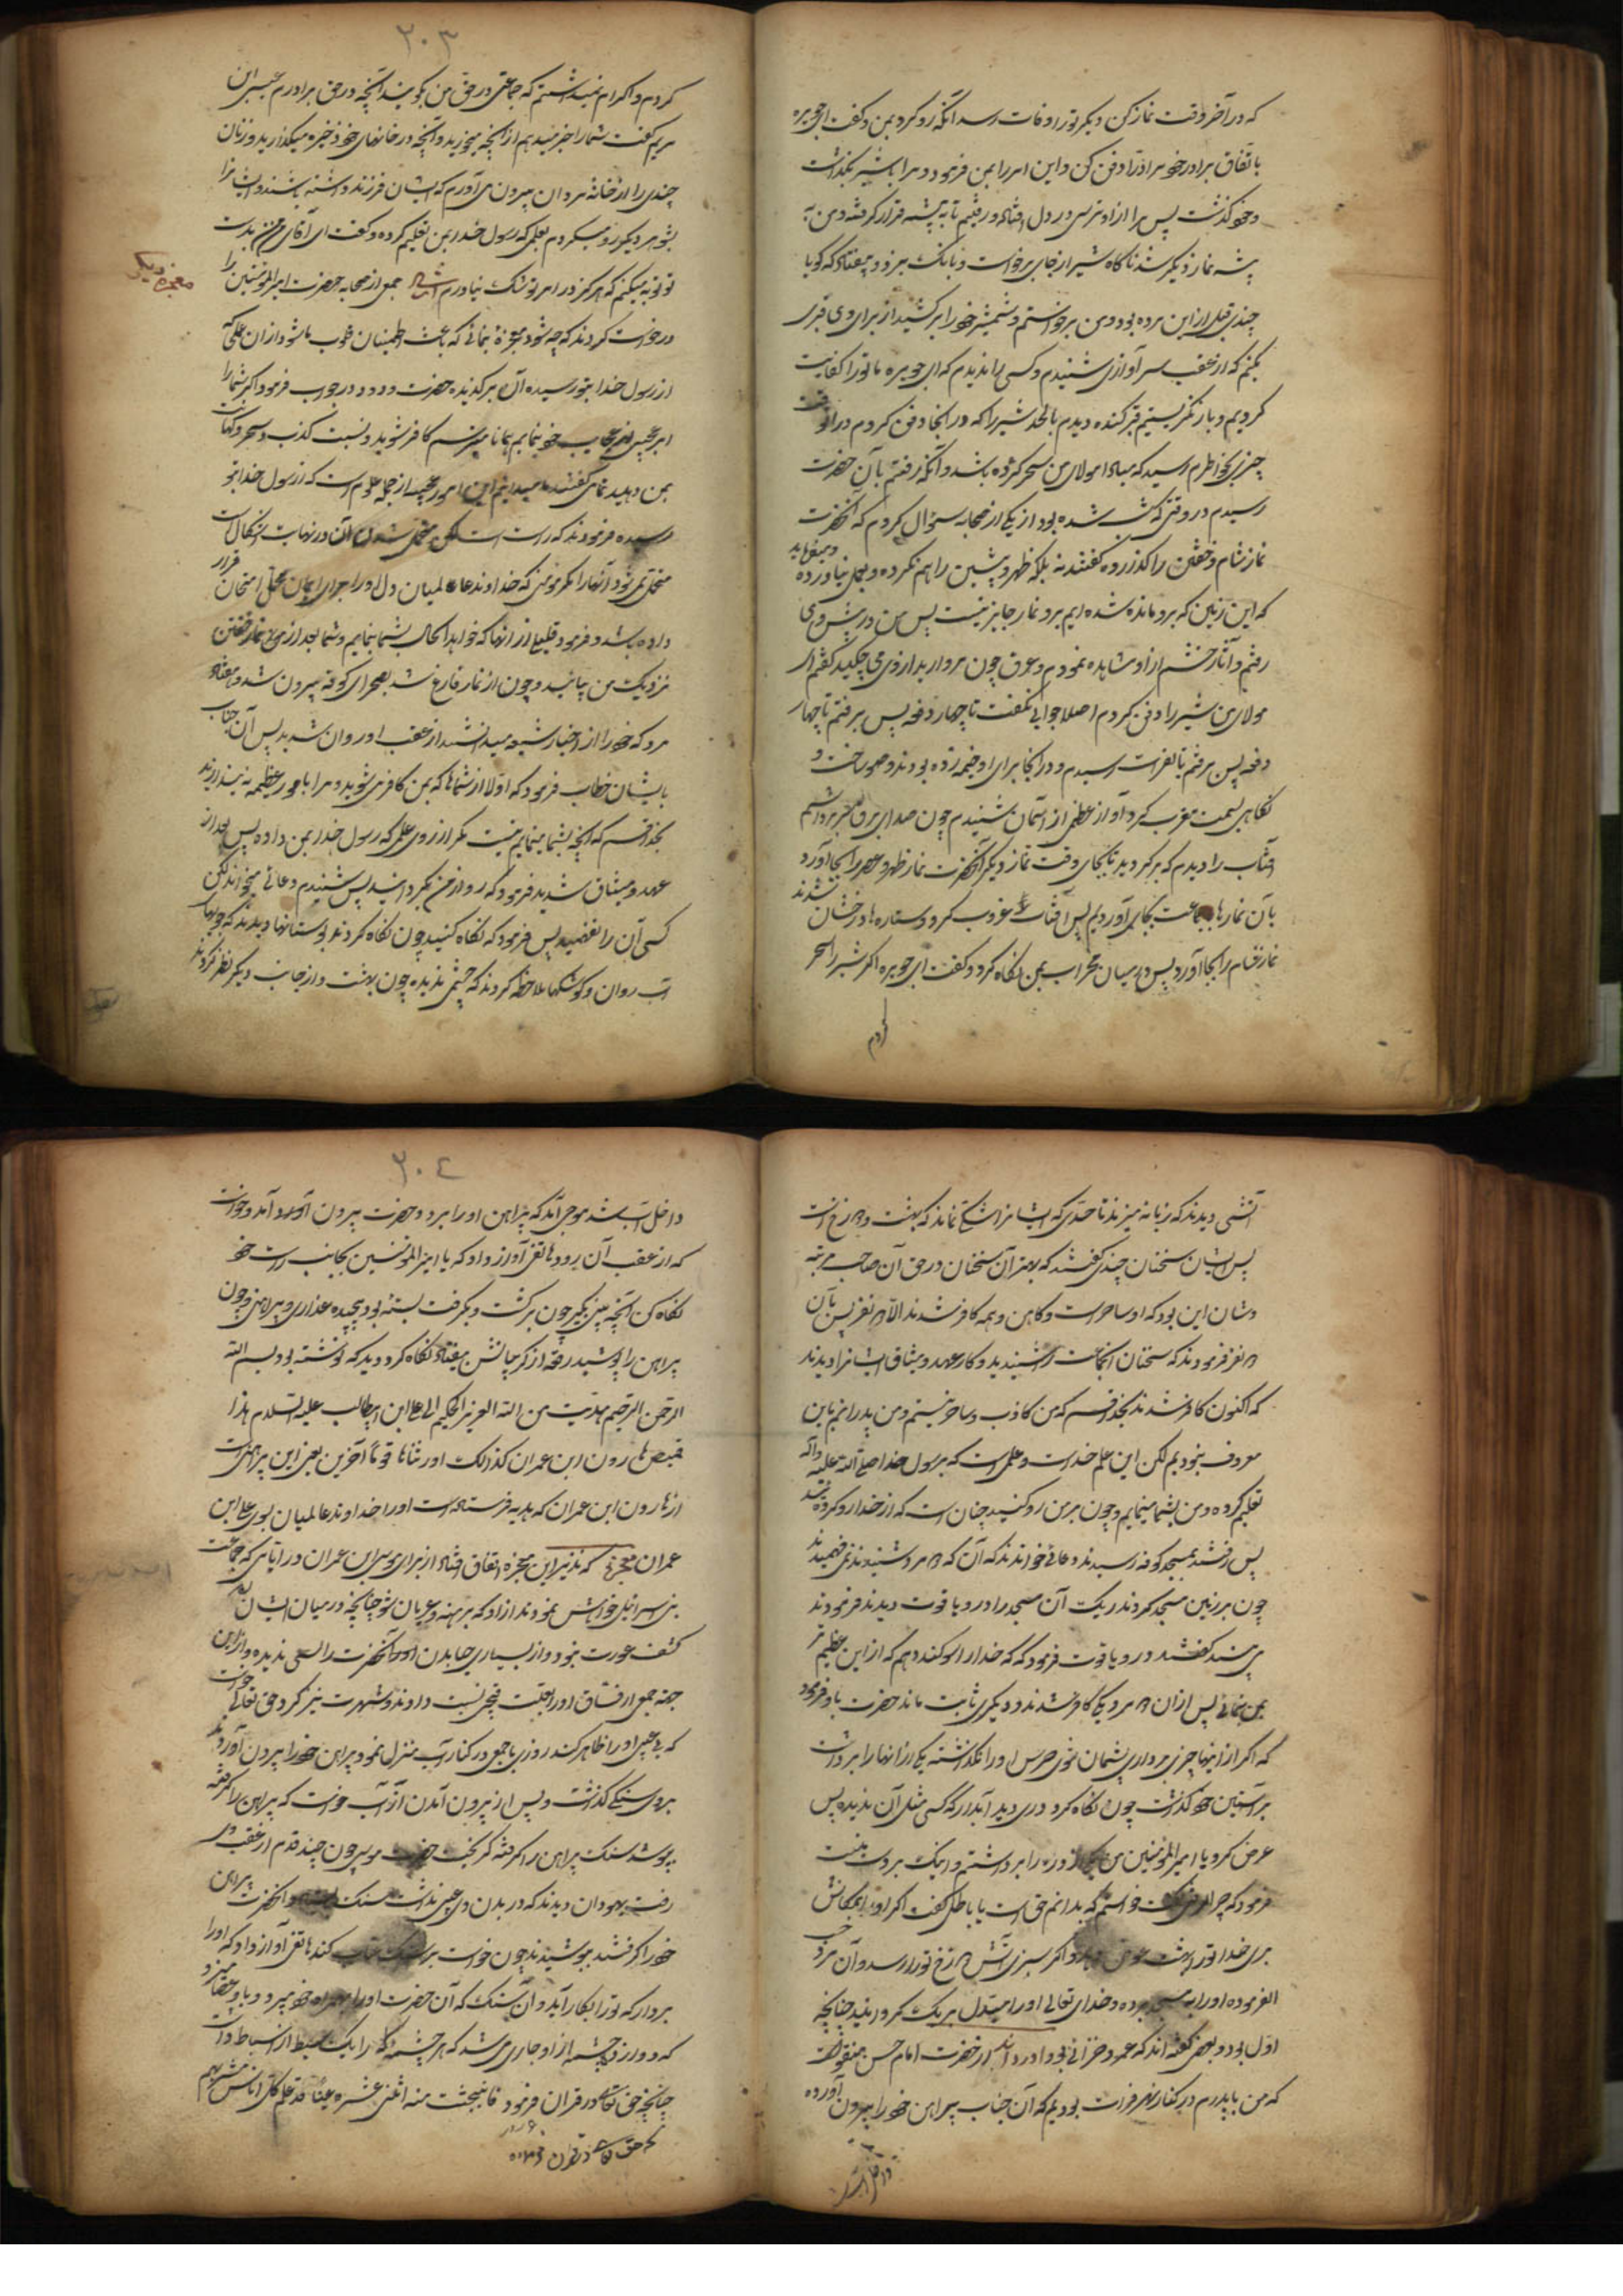 که در آخر وقت نماز کن دیگر تو را وفات رسد آنگه رو کرد بمن و گفت ای جویره
باتفاق برادر خود برادر را دفن کن و این امر را بمن فرمود و مرا با شیر بگذاشت
و خود گذشت پس مرا از او ترسی در دل افتاد و رفتیم تا به پشه قرار گرفته و من به
پشه نماز دیگر شد ناگاه شیر از جای برخواست و بانگ میزد و بیفتاد که گویا
چندی قبل از این مرده بود و من برخواستم و شمشیر خود را برکشید از برای وی قبری
بکنم که از عقب سر آوازی شنیدم و کسی را ندیدم که ای جویره ما تو را کفایت
کردیم و باز نگریستم قبر کنده دیدم با لحد شیر را که در آنجا دفن کردم در آنوقت
چیزی بخاطرم رسید که مبادا مولای من سحر کرده باشد و آنگه رفتم بآن حضرت
رسیدم در وقتی که شب شده بود از یکی از صحابه سؤال کردم که آنحضرت
نماز شام و خفتن را گذارده گفتند نه بلکه ظهر و پیشین را هم نکرده و بعمل نیاورده و میفرماید
که این زمین که بر و مانده شده ایم بر و نماز جایز نیست پس من در پیش وی
رفتم و آثار خشم از او مشاهده نمودم و عرق چون مروارید از وی می چکید گفتم ای
مولای من شیر را دفن کردم اصلا جوابی نگفت تا چهار دفعه پس برفتم تا چهار
دفعه پس برفتم تا بفرات رسیدم و در آنجا برای او خیمه زده بودند وضو ساخت و
نگاهی بسمت مغرب کرد آواز عظیمی از آسمان شنیدم چون صدای برق سر برداشتم
آفتاب را دیدم که برگردید تا بجای وقت نماز دیگر آنحضرت نماز ظهر و عصر را بجا آورد
بآن نمازها بجماعت بجای آوردیم پس آفتاب غروب کرد و ستاره ها درخشان شدند
نماز شام را بجا آورد پس در میان محراب بمن نگاه کرد و گفت ای جویره اگر شیر را سحر
کردم
۲۰۳
کردم و اکرام نمیداشتم که جماعتی در حق من بگویند آنچه در حق برادرم عیسی ابن
مریم گفت شما را خبر میدهم از آنچه میخورید و آنچه در خانهای خود ذخیره میگذارید و زنان
چندی را از خانهٔ مردان بیرون می آورم که ایشان فرزند داشته باشند و ایشانرا
بشوهر دیگر رو میکردم بعلمی که رسول خدا بمن تعلیم کرده و گفت ای آقای من بدست
تو توبه میکنم که هرگز در امر تو شک نیاورم جمعی از صحابه حضرت امیر المؤمنین را
معجزه دیگر
درخواست کردند که چه شود معجزهٔ بنمائی که باعث اطمینان قلوب ما شود از آن علمی که
از رسول خدا بتو رسیده آن برگزیده حضرت در جواب فرمود اگر شما را
امر عجیبی از عجایب خود بنمایم همانا میترسم کافر شوید و نسبت کذب و سحر و کهانت
بمن دهید تمامی گفتند ما میدانیم این امور عجیبه از جمله علوم است که از رسول خدا بتو
رسیده فرمودند که راست است لکن متحمل شدن آن در نهایت اشکال است
متحمل نمیشود آنها را مگر مؤمنی که خداوند عالمیان دل او را برای ایمان محل امتحان قرار
داده باشد و فرمود قلیلی از آنها که خواهد الحال بشما بنمایم و شما بعد از نماز خفتن
نزدیک من بیائید و چون از نماز فارغ شد بصحرای کوفه بیرون شد و هفتاد
مرد که خود را از اخیار شیعه میدانستند از عقب او روان شدند پس آنجناب
بایشان خطاب فرمود که اولا از شماها که بمن کافر می شوید و مرا با مور عظیمه نسبت ندارید
بخدا قسم که آنچه بشما مینمایم نیست مگر از روی علمی که رسول خدا بمن داده پس بعد از
عهد و میثاق شدید فرمود که رو از من بگردانید پس شنیدم دعائی میخواند لکن
کسی آن را نفهمید پس فرمود که نگاه کنید چون نگاه کردند بوستانها دیدند که جویهای
آب روان و کوشکها ملاحظه کردند که چشمی ندیده چون بهشت و از جانب دیگر نظر کردند
آتشی دیدند که زبانه میزند تا حدی که ایشانرا شکی نماند که بهشت و دوزخ است
پس ایشان سخنان چندی گفتند که بهتر آن سخنان در حق آن صاحب مرتبه
و شان این بود که او ساحر است و کاهن و همه کافر شدند الا دو نفر پس بآن
دو نفر فرمودند که سخنان آنجماعت را شنیدید و کار عهد و میثاق ایشانرا دیدند
که اکنون کافر شدند بخدا قسم که من کاذب و ساحر نیستم و من پدرانم باین
معروف نبودیم لکن این علم خداست و علمی است که برسول خدا صلی الله علیه و آله
تعلیم کرده و من بشما مینمایم و چون بر من رو کنید چنان است که از خدا رو کرده شد
پس رفتند بمسجد کوفه رسیدند دعائی خواندند که آن دو مرد شنیدند نمی فهمیدند
چون بر زمین مسجد کردند ریگ آن مسجد را در و یاقوت دیدند فرمودند
می بیند گفتند در و یاقوت فرمود که خدا را سوگند دهم که از این عظیم تر
بمن بنمائی پس از آن دو مرد یکی کافر شدند و دیگری ثابت ماند حضرت باو فرمود
که اگر از اینها چیزی برداری پشیمان شوی حرص او را نگذاشته یکی از آنها را برداشت
بر آستین خود گذاشت چون نگاه کرد دری دید آبدار که کسی مثل آن ندیده پس
عرض کرد یا امیر المؤمنین من یکی از دره را برداشتم و اینک بر دست منست
فرمود که چرا گفت خواستم که بدانم حق است یا باطل گفت اگر او را بمکانش
بری خدا تو را بهشت عوض دهد و اگر نبری آتش دوزخ تو را رسد و آن مرد حسب
الفرموده او را به مسجد برده و خدای تعالی او را مبتدل بریگ گردانید چنانچه
اول بود و بعضی گفته اند که عمرو خزاعی بود و از حضرت امام حسن منقولست
که من با پدرم در کنار نهر فرات بودیم که آن جناب پیراهن خود را بیرون آورده
داخل آب شد
۲۰٤
داخل آب شد موجی آمد که پیراهن او را برد و حضرت بیرون آمد و خواست
که از عقب آن رود هاتفی آواز داد که یا امیر المؤمنین بجانب راست خود
نگاه کن آنچه بینی بگیر چون برگشت و بگرفت بستهٔ بود پیچیده عذاری و پیراهنی و چون
پیراهن را پوشید رقعه از گریبانش بیفتاد نگاه کرد و دید که نوشته بود بسم الله
الرحمن الرحیم هدیت من الله العزیز الحکیم الی علی ابن ابیطالب علیه السلام هذا
قمیص هارون ابن عمران کذالک اورثناها قوماً آخرین یعنی این پیراهنی است
از هارون ابن عمران که هدیه فرستاده است او را خداوند عالمیان بسوی علی ابن
عمران معجزه که نذیر این معجزه اتفاق افتاد از برای موسی ابن عمران در ایامی که جماعت
بنی اسرائیل خواهش نمودند از او که برهنه و عریان شو چنانچه در میان ایشان
کشف عورت نبود و از بسیاری حیا بدن آنحضرت را کسی ندیده و از این
جهة جمعی از فساق او را بعلت قبحی نسبت دادند و شهرت نیز کرد حق تعالی خواست
که بی عیبی او را ظاهر کند روزی با جمعی در کنار آب منزل نمود پیراهن خود را بیرون آورده
بروی سنگی گذاشت و پس از بیرون آمدن از آب خواست که پیراهن را گرفته
بپوشد سنگ پیراهن را گرفته گریخت حضرت موسی چون چند قدم از عقب وی
رفت یهودان دیدند که در بدن وی عیبی نداشت سنگ و آنحضرت پیراهن
خود را گرفتند پوشیدند چون خواست بر سنگ عتاب کند هاتفی آواز داد که او را
بردار که تو را بکار آید و آن سنگ که آن حضرت او را بهمراه خود میبرد و با وعصا میزد و
که دوازده چشمه از او جاری می شد که هر چشمه را یک سبط از اسباط داشت
چنانچه حق تعالی در قران فرمود فانبجست منه اثنی عشره عیناً قد علم کل اناس مشربهم
که حق تعالی در قران فرموده